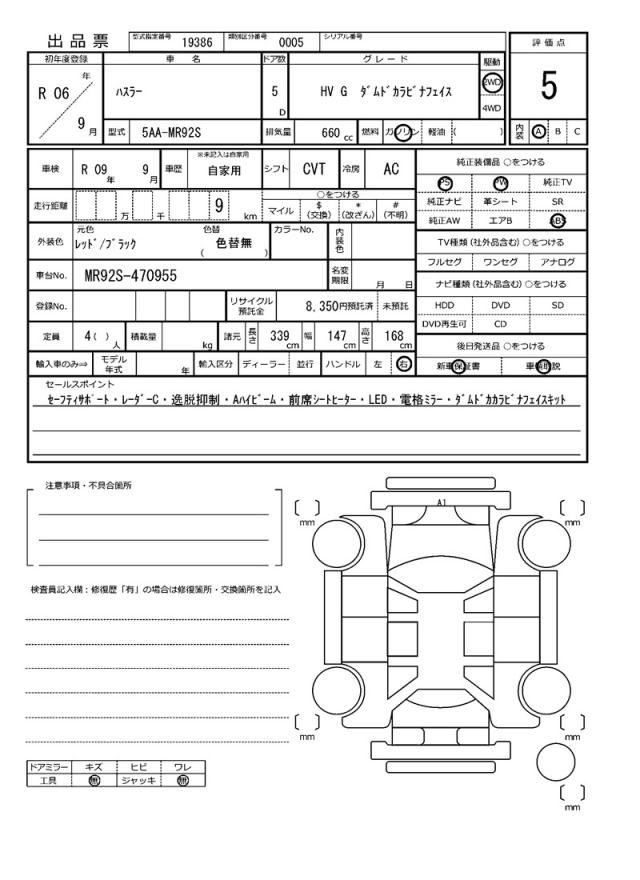 出品票 型式指定番号 19386 類別区分番号 0005 シリアル番号
評価点
5
内装 A B C
初年度登録 車名 ドア数 グレード 駆動
R 06 年 9 月
ﾊｽﾗｰ 5 D HV G ﾀﾞﾑﾄﾞｶﾗﾋﾞﾅﾌｪｲｽ 2WD
4WD
型式 5AA-MR92S 排気量 660 cc 燃料 ガソリン 軽油 ( )
車検 R 09 年 9 月 車歴 ※未記入は自家用 自家用 シフト CVT 冷房 AC
走行距離 万 千 9 km
○をつける
マイル $ (交換) * (改ざん) # (不明)
外装色 元色 ﾚｯﾄﾞ/ﾌﾞﾗｯｸ 色替 ( 色替無 ) カラーNo. 内装色
車台No. MR92S-470955 名変期限 月 日
登録No. リサイクル預託金 8,350円預託済 未預託
定員 4( ) 人 積載量 kg 諸元 長さ 339 cm 幅 147 cm 高さ 168 cm
輸入車のみ⇒ モデル年式 年 輸入区分 ディーラー 並行 ハンドル 左 右
純正装備品 ○をつける
PS PW 純正TV
純正ナビ 革シート SR
純正AW エアB ABS
TV種類 (社外品含む) ○をつける
フルセグ ワンセグ アナログ
ナビ種類 (社外品含む) ○をつける
HDD DVD SD
DVD再生可 CD
後日発送品 ○をつける
新車保証書 車輌取説
セールスポイント
ｾｰﾌﾃｨｻﾎﾟｰﾄ・ﾚｰﾀﾞｰC・逸脱抑制・Aﾊｲﾋﾞｰﾑ・前席ｼｰﾄﾋｰﾀｰ・LED・電格ﾐﾗｰ・ﾀﾞﾑﾄﾞｶｶﾗﾋﾞﾅﾌｪｲｽｷｯﾄ
注意事項・不具合箇所
検査員記入欄：修復歴「有」の場合は修復箇所・交換箇所を記入
A1
mm
mm
mm
mm
mm
ドアミラー キズ ヒビ ワレ
工具 無 ジャッキ 無